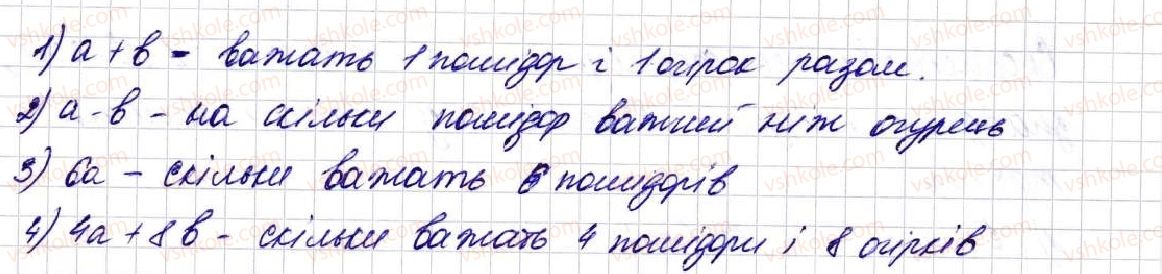 1) a + b - важать 1 помідор і 1 огірок разом.
2) a - b - на скільки помідор важчий ніж огурець
3) 6a - скільки важать 6 помідорів
4) 4a + 8b - скільки важать 4 помідори і 8 огірків